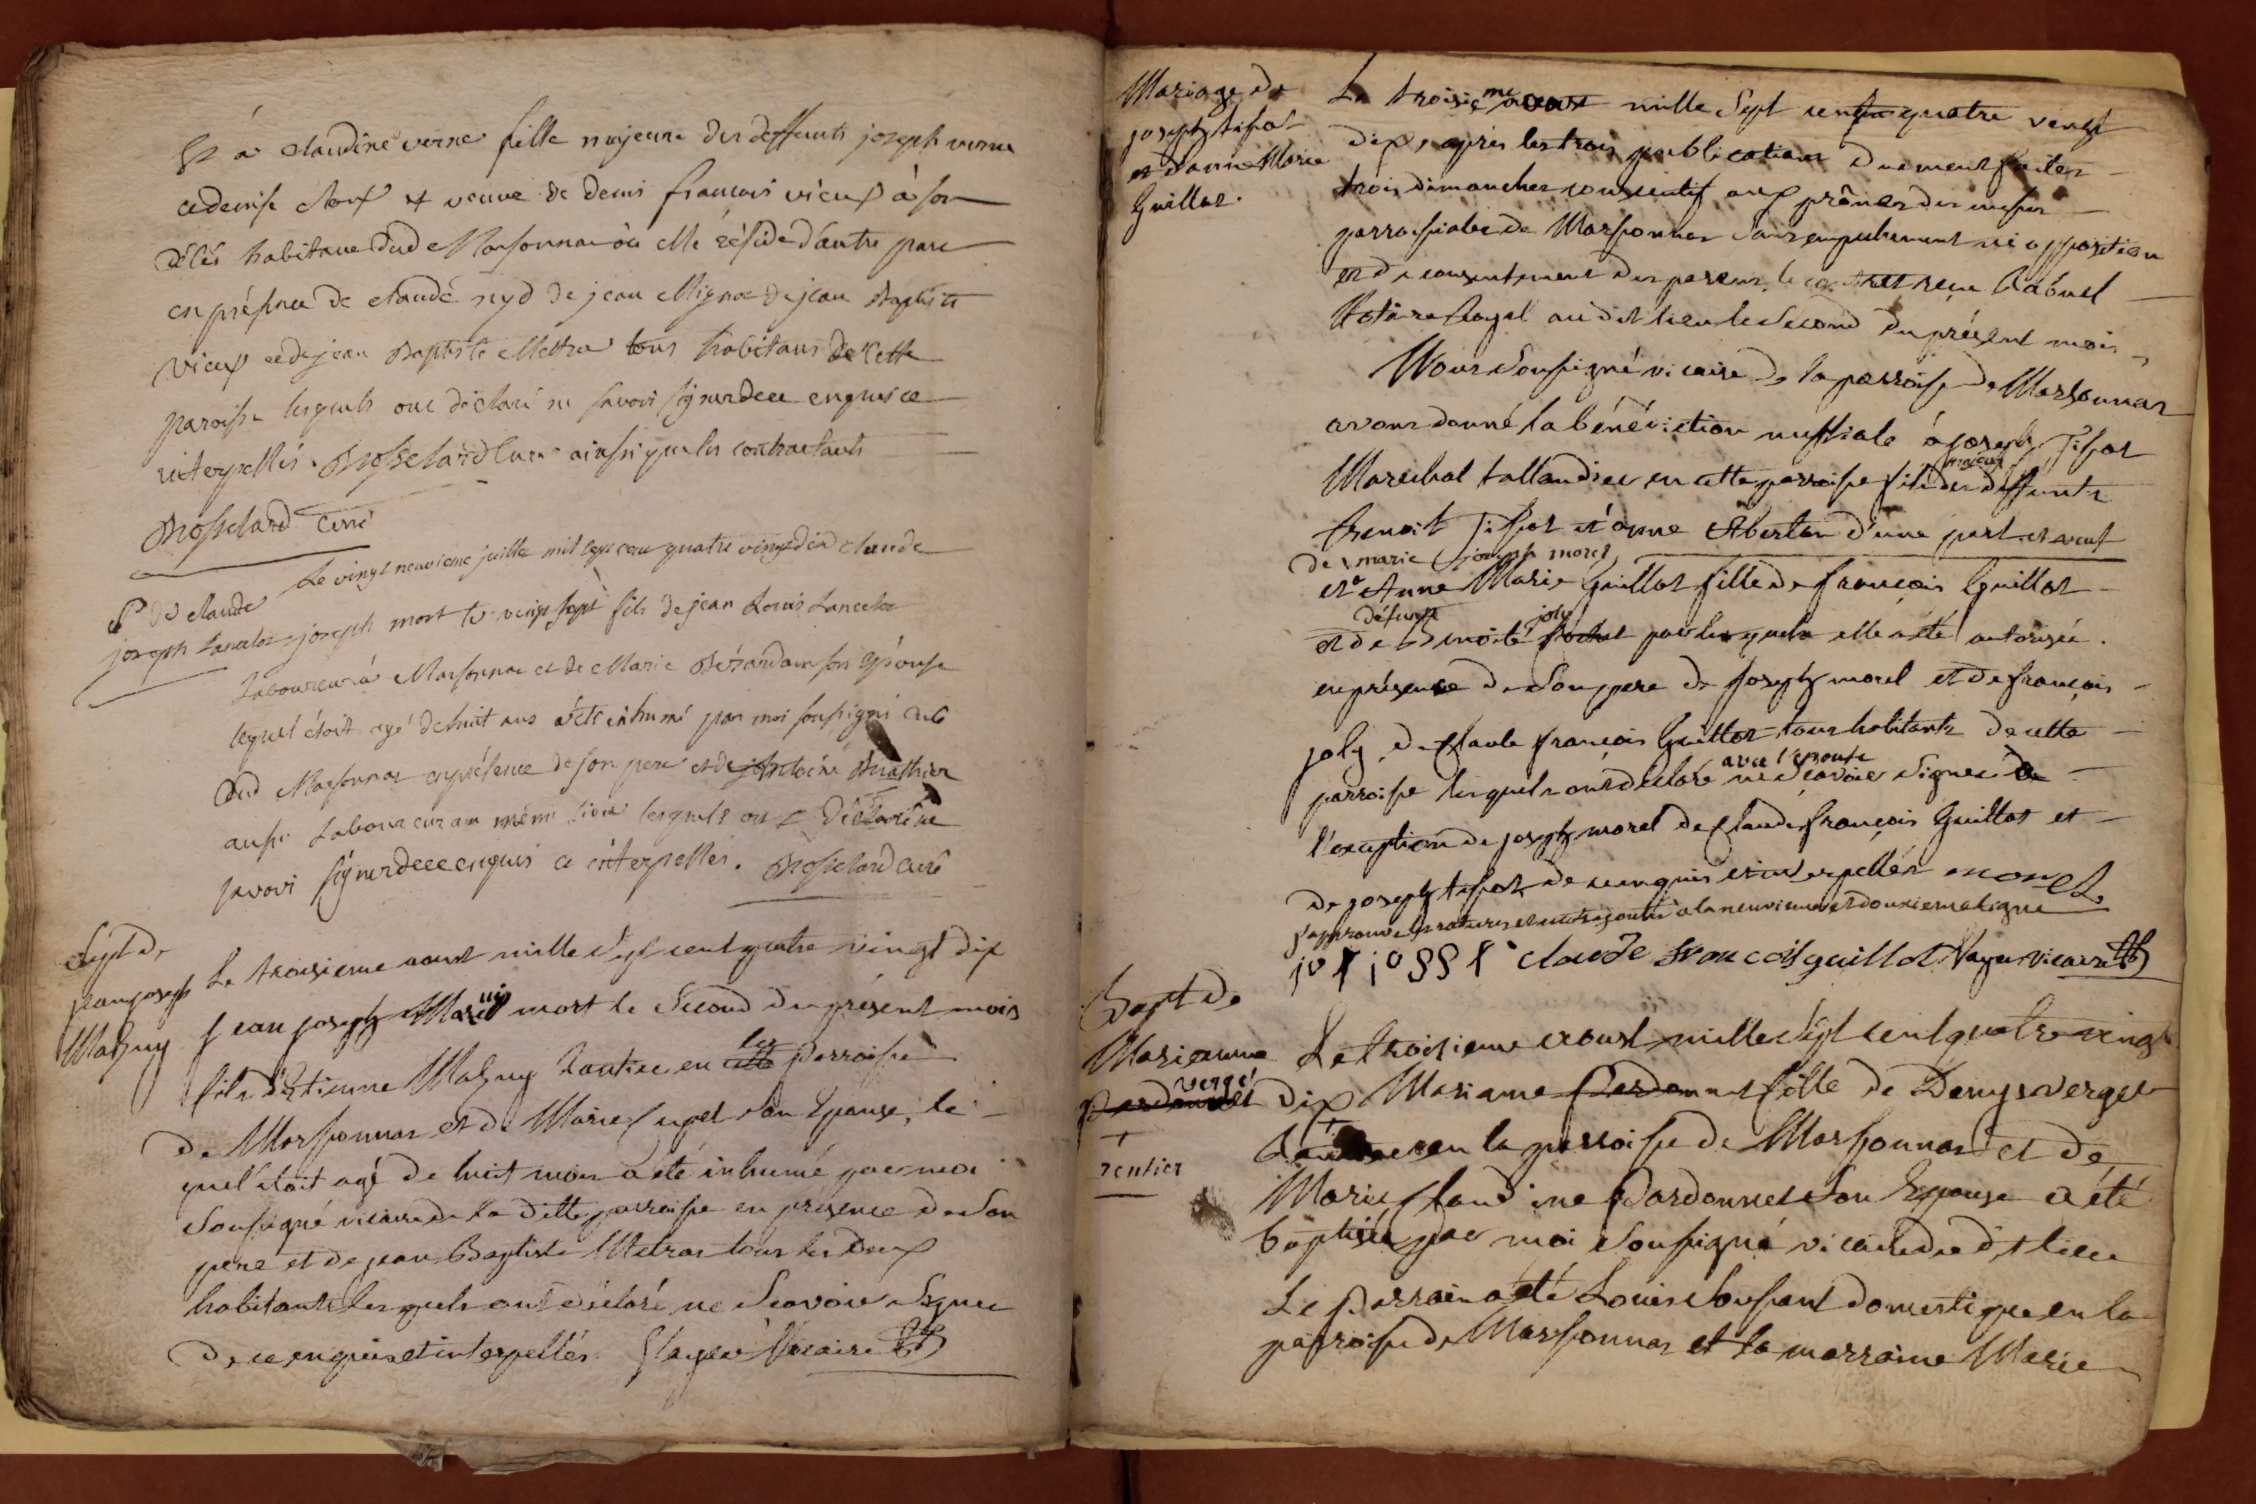 Et à claudine verne fille majeure des deffunts joseph verne
et veuve de denis françois vieux à son
habitant dud Marsonnas où elle réside d'autre part
en présence de claude nyd de jean Mignot de jean Baptiste
vieux et de jean Baptiste Mettra tous habitans de cette
paroisse lesquels ont déclaré ne savoir signer de ce enquis et
interpellés. ainsi que les contractants
Brosselard curé
S. de claude
joseph Lancelot
Le vingt neuvieme juillet mil sept cent quatre vingt dix claude
joseph mort le vingt sept fils de jean Louis Lancelot
Laboureur à Marsonnas et de Marie son Epouse
lequel étoit agé de huit ans a été inhumé par moi soussigné curé
dud Marsonnas en présence de son pere et de Antoine
aussi Laboureur au même lieu lesquels ont déclaré ne
savoir signer de ce enquis et interpellés. Brosselard curé
Sept de
jean joseph
Mathuy
Le troisieme aoust mille sept cent quatre vingt dix
jean joseph mort le second du présent mois
fils d'Etienne Mathuy Rentier en parroisse
de Marsonnas et de Marie son Epouse, le
quel étoit agé de huit mois a été inhumé par moi
soussigné vicaire de la ditte parroisse en presence de son
pere et de jean Baptiste Metras tous les deux
habitants lesquels ont déclaré ne sçavoir signer
de ce enquis et interpellés. vicaire
Mariage de
joseph tissot
et d'anne Marie
Guillot.
Le troisieme aoust mille sept cent quatre vingt
dix, après les trois publications duement faites
trois dimanches consecutifs aux prônes des messes
parroissiales de Marsonnas sans empechement ni opposition
et de consentement des parens, le contract reçu
Notaire Royal au dit lieu le second du présent mois,
Nous soussigné vicaire de la parroisse de Marsonnas
avons donné la bénédiction nuptiale à joseph Tissot
majeur
Marechal tallandier en cette parroisse fils des deffunts
Benoit Tissot et d'anne d'une part et veuf
de marie joseph morel
et à Anne Marie Guillot fille de françois Guillot
défunte joly
et de Benoite par lesquels elle a été autorisée.
en présence de son pere de joseph morel et de françois
joly, de claude françois Guillot tous habitants de cette
avec l'epouse
parroisse lesquels ont déclaré ne sçavoir signer à
l'exception de joseph morel de claude françois Guillot et
de joseph tissot de ce enquis et interpellés morel
j'approuve la rature et l'entrajouté à la neuvieme et douzieme ligne
claude francois guillot vicaire
Bapt de
Marianne
vergé
Pardonnet
rentier
Le troisieme aoust mille sept cent quatre vingt
dix Marianne Pardonnet fille de Denys verget
en la parroisse de Marsonnas et de
Marie Claudine Pardonnet son Epouse a été
baptisée par moi soussigné vicaire du dit lieu
Le parrain a été Louis domestique en la
parroisse de Marsonnas et la marraine Marie